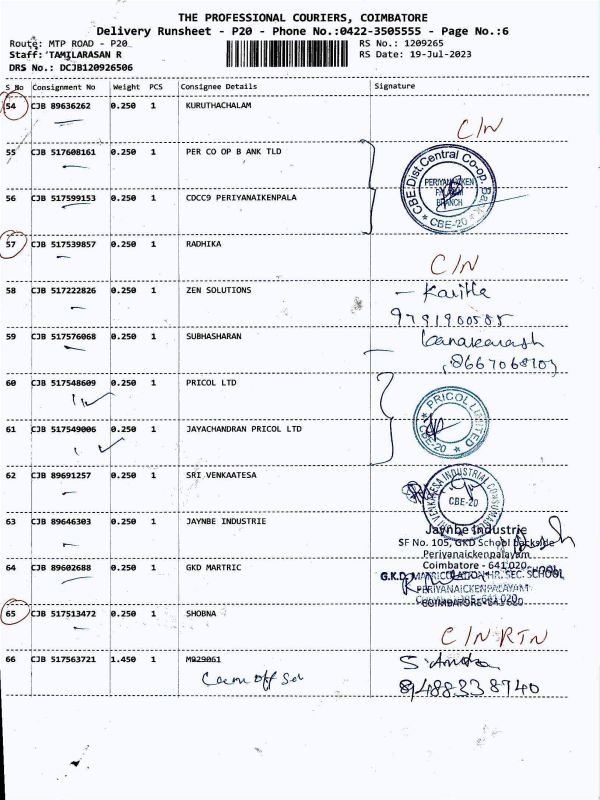 THE PROFESSIONAL COURIERS, COIMBATORE
Delivery Runsheet - P20 - Phone No.:0422-3505555 - Page No.:6
Route: MTP ROAD - P20 RS No.: 1209265
Staff: TAMILARASAN R RS Date: 19-Jul-2023
DRS No.: DCJB120926506
S No Consignment No Weight PCS Consignee Details Signature
54 CJB 89636262 0.250 1 KURUTHACHALAM
C/N
55 CJB 517608161 0.250 1 PER CO OP B ANK TLD
CBE.Dist.Central Co-op. Bank
PERIYANAICKEN
PALAYAM
BRANCH
* CBE-20 *
56 CJB 517599153 0.250 1 CDCC9 PERIYANAIKENPALA
57 CJB 517539857 0.250 1 RADHIKA
C/N
58 CJB 517222826 0.250 1 ZEN SOLUTIONS
- Kavitha
59 CJB 517576068 0.250 1 SUBHASHARAN
60 CJB 517548609 0.250 1 PRICOL LTD
* PRICOL LIMITED *
CBE-20
61 CJB 517549006 0.250 1 JAYACHANDRAN PRICOL LTD
62 CJB 89691257 0.250 1 SRI VENKAATESA
SRI VENKATESA INDUSTRIAL
CBE-20
63 CJB 89646303 0.250 1 JAYNBE INDUSTRIE
Jaynbe Industrie
SF No. 105, GKD School Backside
Periyanaickenpalayam
Coimbatore - 641 020
64 CJB 89602688 0.250 1 GKD MARTRIC
G.K.D. MATRICULATION HR. SEC. SCHOOL
PERIYANAICKENPALAYAM
COIMBATORE-641 020
65 CJB 517513472 0.250 1 SHOBNA
C/N RTN
66 CJB 517563721 1.450 1 M029061
9488338740